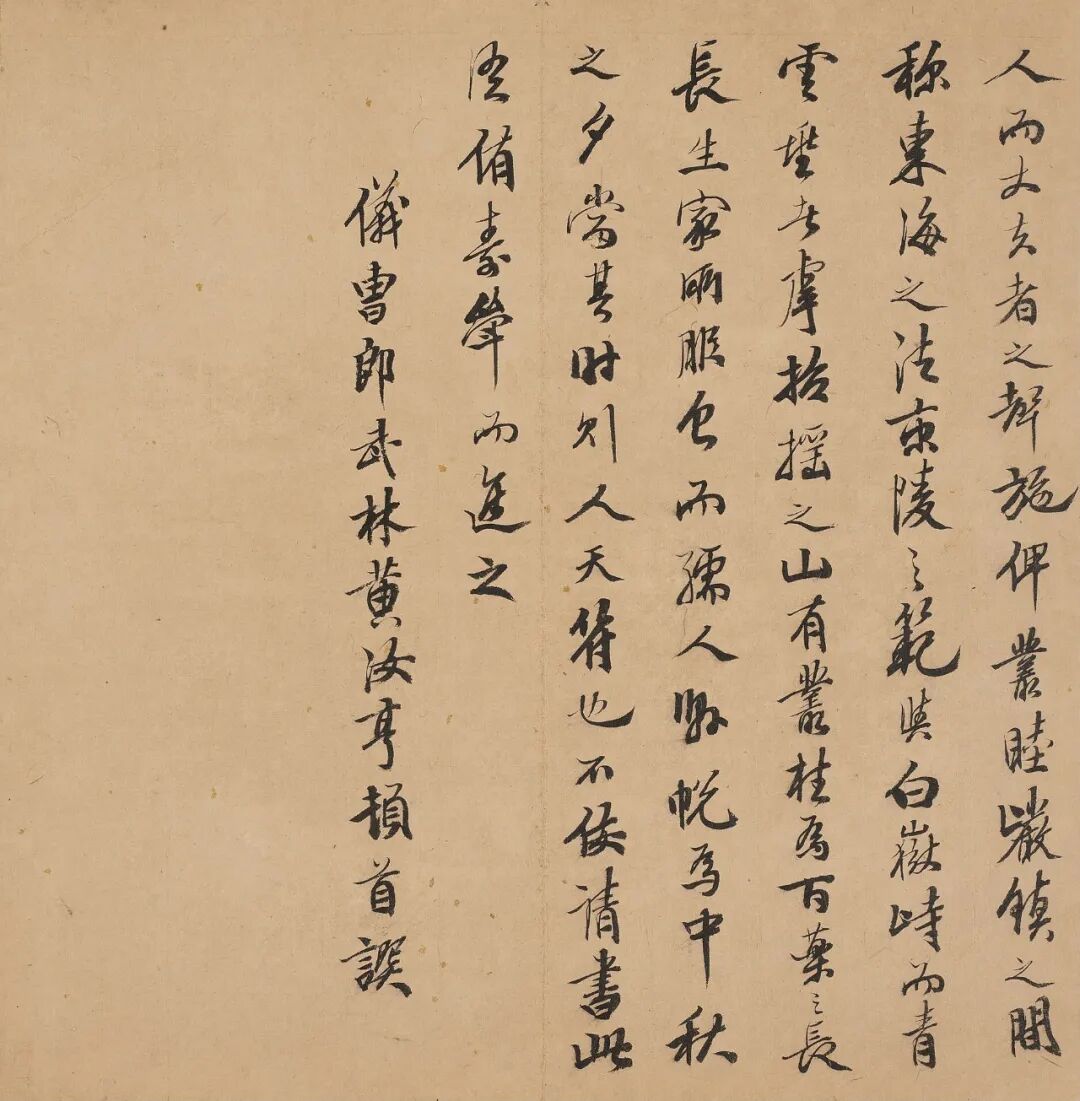 人而丈夫者之聲施俾叢睦巖鎮之間
稱東海之法京陵之範與白嶽峙而青
雲壁者虖招搖之山有叢桂為百藥之長
長生家所服食而孺人帨為中秋
之夕當其時則人天符也不佞請書此
侑壽觴而進之
儀曹郎武林黃汝亨頓首譔